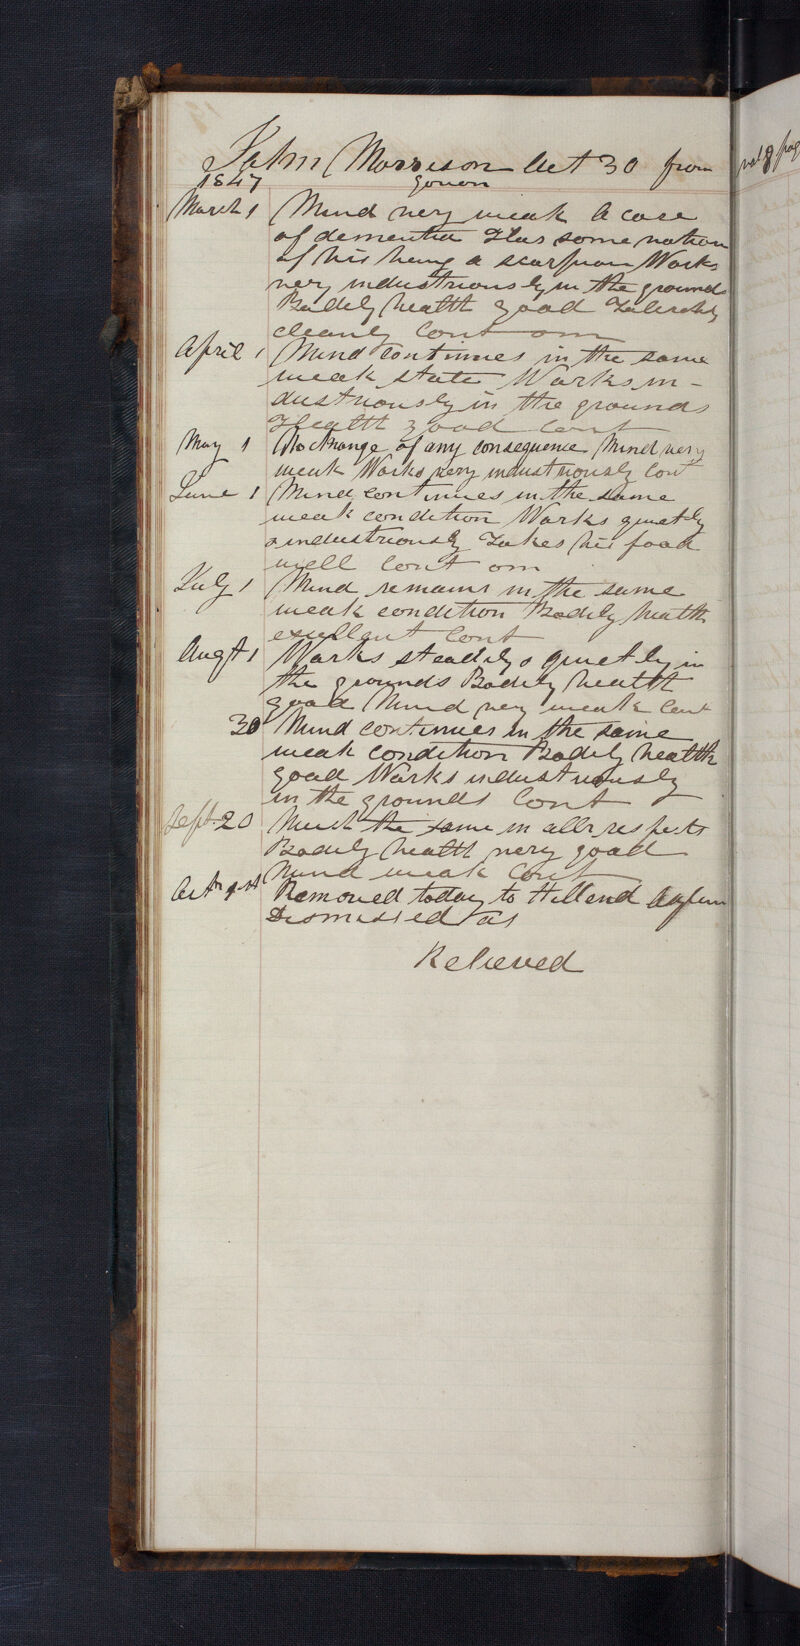 John Morrison Aet 30 from
1847 govan
March 1 Mind very weak A case
of dementia Has some notion
of his being a Works
very industriously in the grounds
Bodily health good Tolerably
cleanly Cont om
April 1 Mind continues in the same
weak state Works in-
dustriously in the grounds
Health good Cont
May 1 No change of any consequence Mind very
weak Works very industriously Cont
June 1 Mind continues in the same
weak condition Works quietly
& industriously Takes his food
well Cont om
July 1 Mind remains in the same
weak condition Bodily health
excellent Cont
Augt 1 Works steadily & quietly in
the grounds Bodily health
good Mind very weak Cont
30 Mind continues in the same
weak condition Bodily health
good Works industriously
in the grounds Cont
Sept. 20 Much the same in all respects
Bodily health very good
Mind weak Cont
Removed today to Hillend Asylum
Dismissed as
Relieved